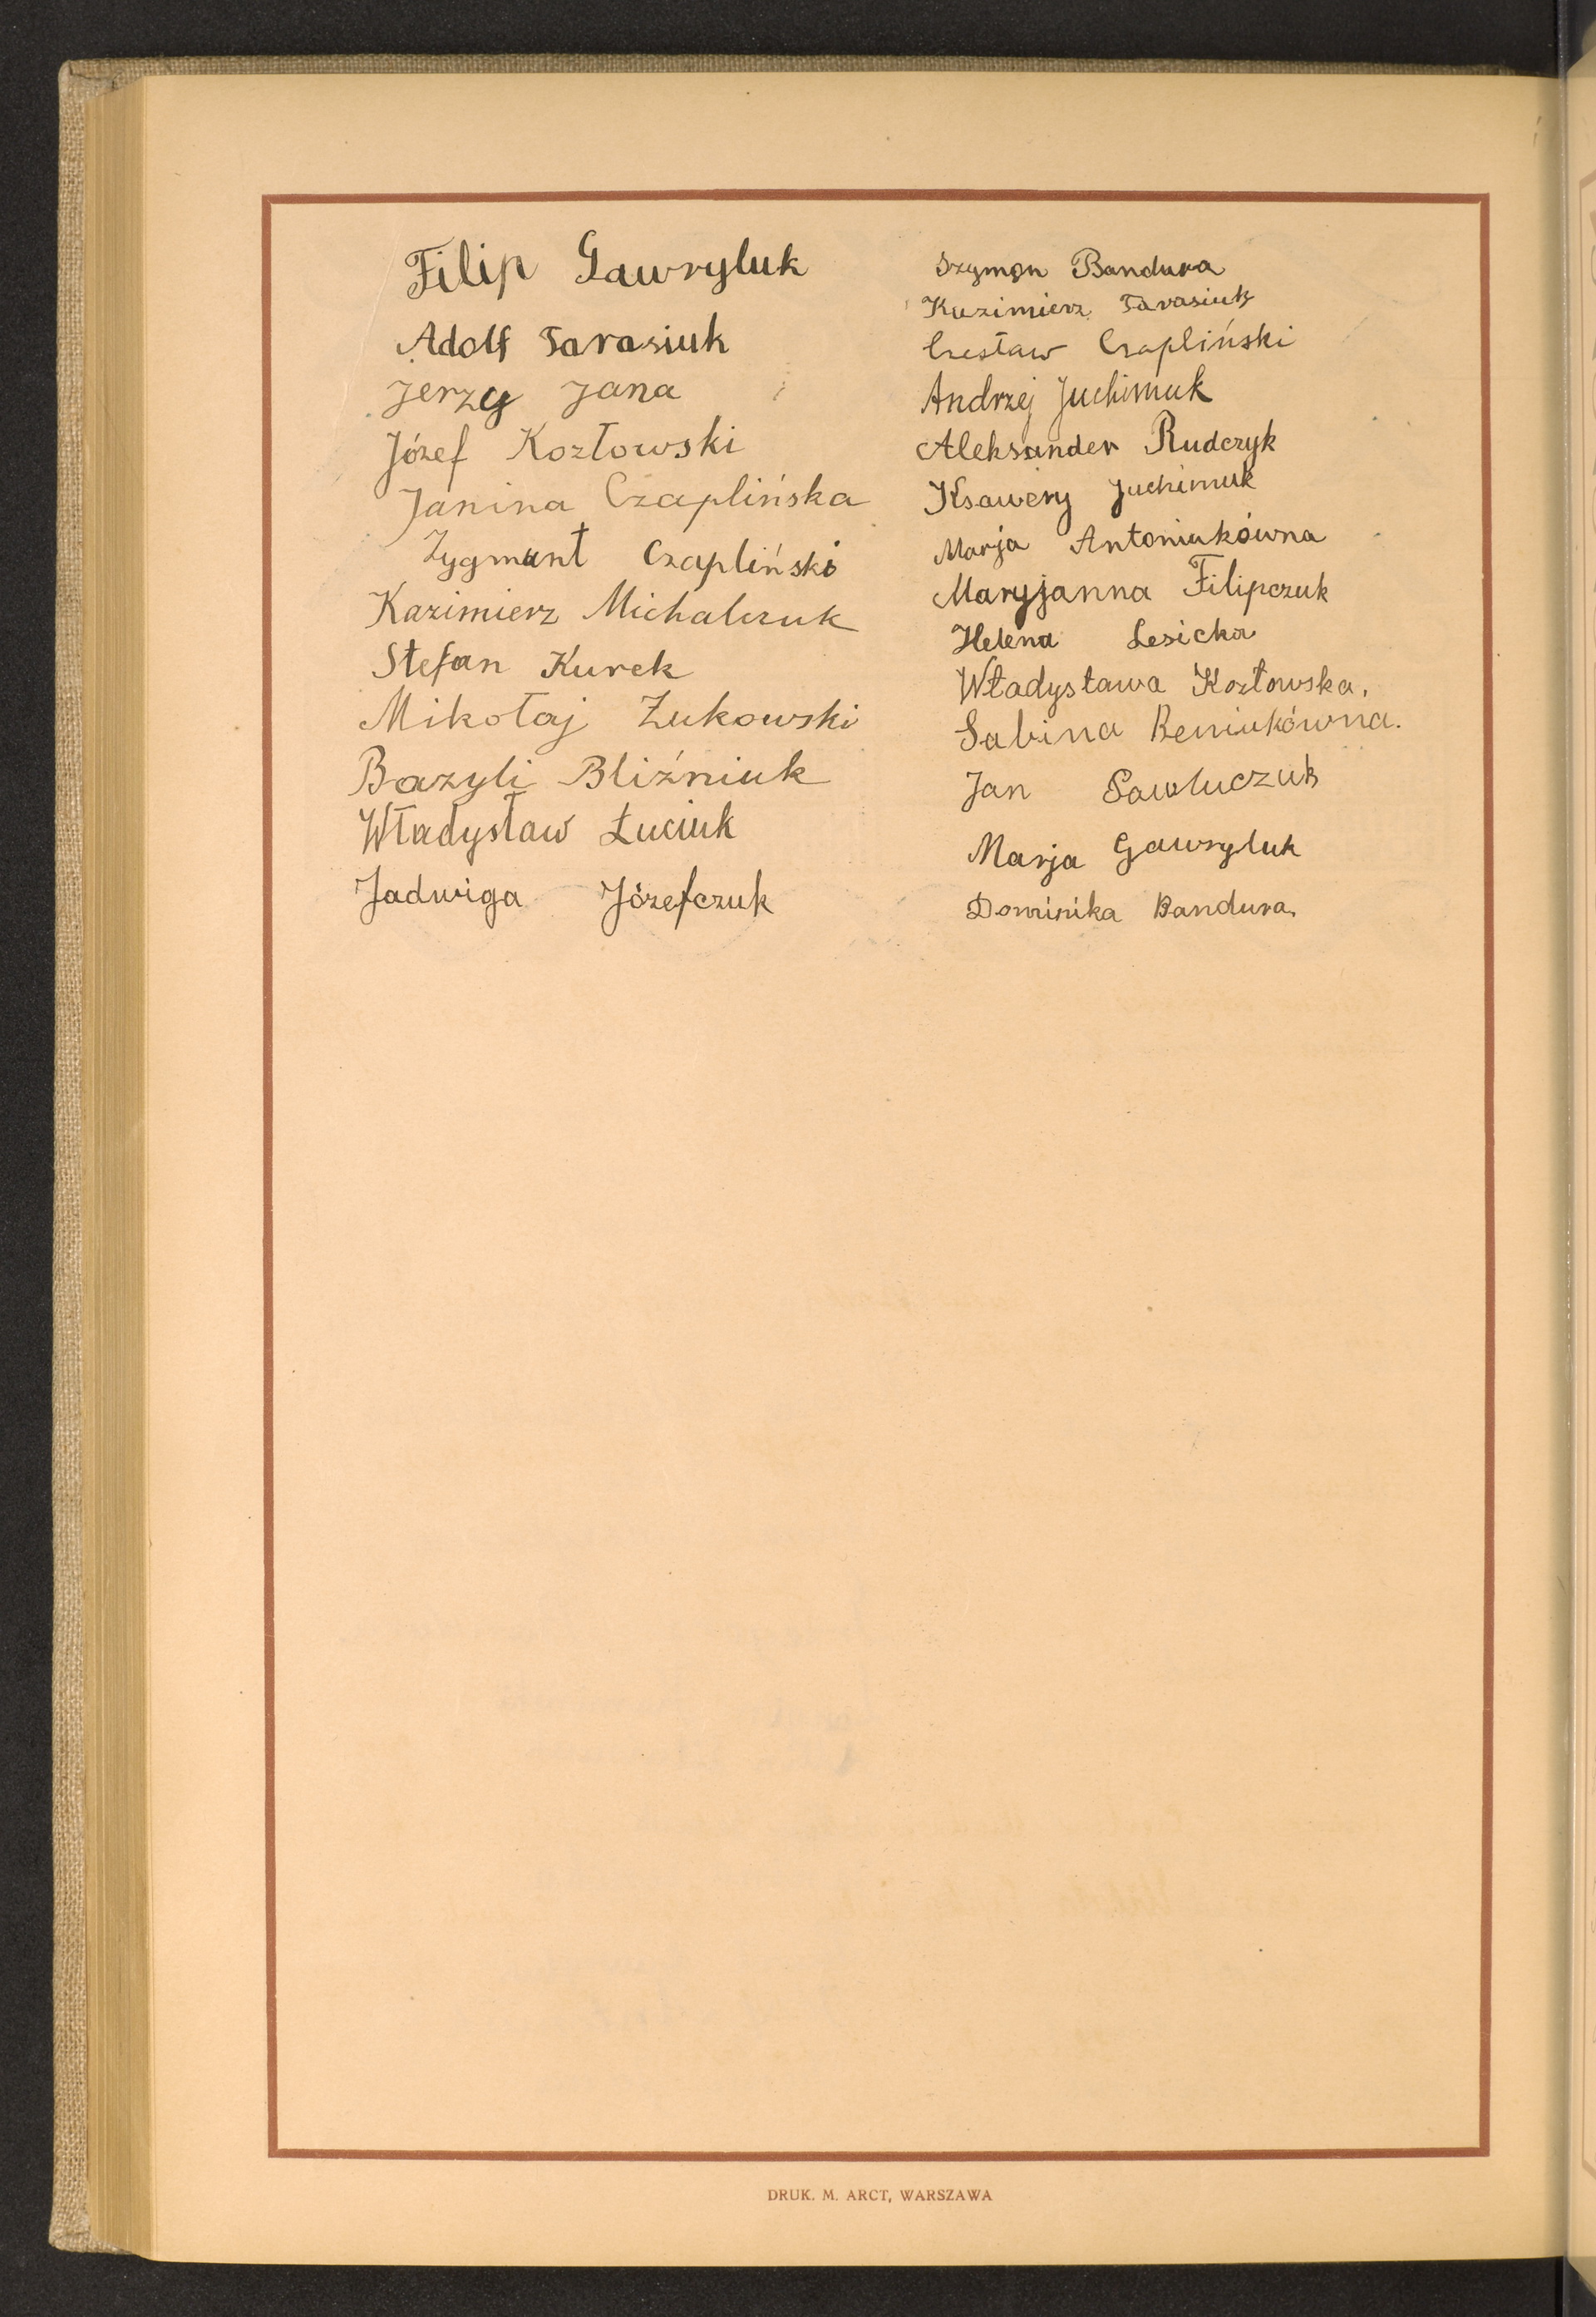 Filip Gawryluk
Adolf Tarasiuk
Jerzy Jana
Józef Kozłowski
Janina Czaplińska
Zygmunt Czapliński
Kazimierz Michalczuk
Stefan Kurek
Mikołaj Żukowski
Bazyli Bliźniuk
Władysław Łuciuk
Jadwiga Józefczuk
Szymon Bandura
Kazimierz Tarasiuk
Czesław Czapliński
Andrzej Juchimuk
Aleksander Rudczyk
Ksawery Juchimuk
Marja Antoniukówna
Maryjanna Filipczuk
Helena Lesicka
Władysława Kozłowska.
Sabina Beniukówna.
Jan Sawluczuk
Marja Gawryluk
Dominika Bandura.
DRUK. M. ARCT, WARSZAWA